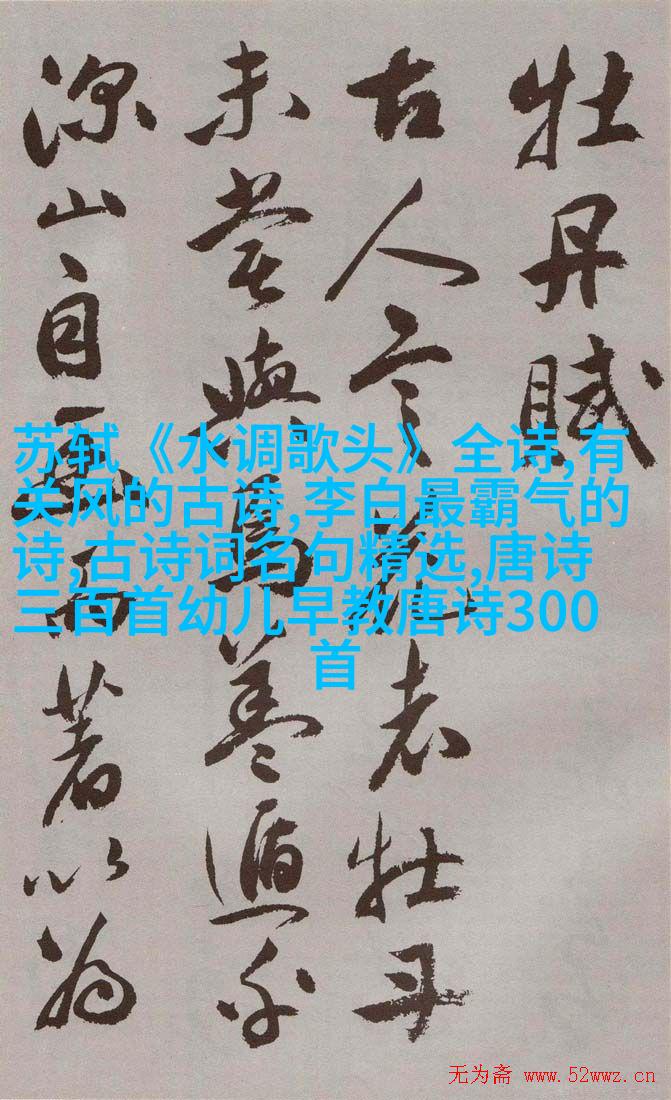 牡丹賦
古人言花者牡丹
未嘗與焉蓋遁乎
深山自幽而著以為
苏轼《水调歌头》全诗,有
关风的古诗,李白最霸气的
诗,古诗词名句精选,唐诗
三百首幼儿早教唐诗300
首
无为斋 www.52wwz.cn